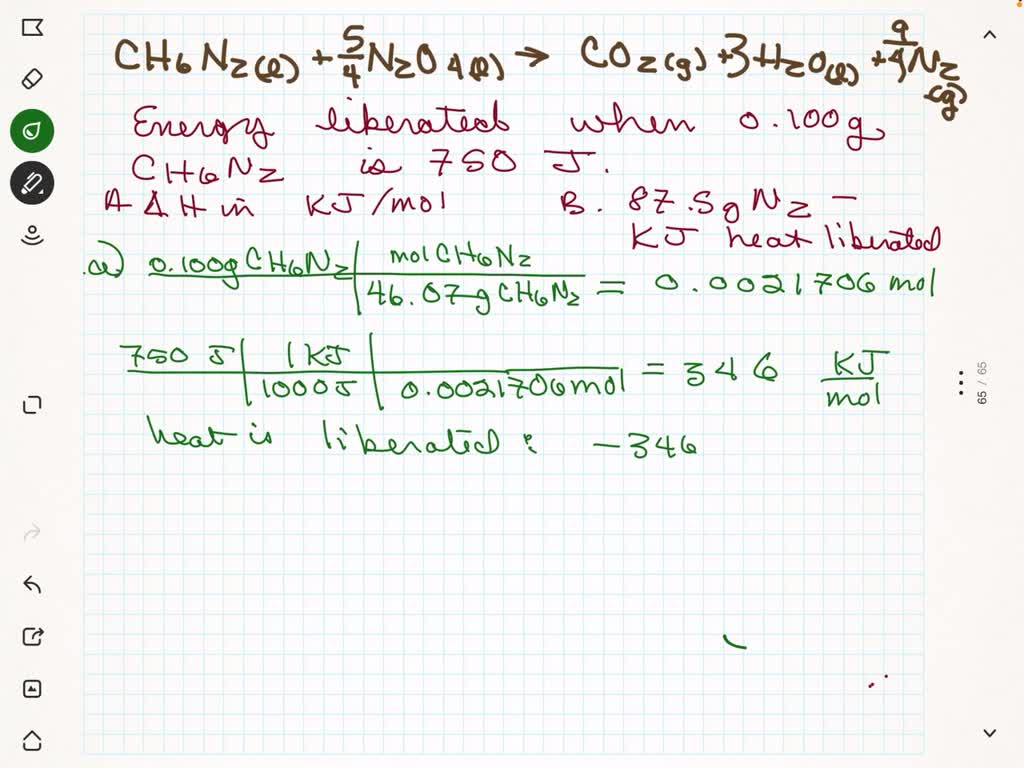 CH6N2(l) + 5/4 N2O4(l) → CO2(g) + 3H2O(l) + 9/4 N2(g)
Energy liberated when 0.100g
CH6N2 is 750 J.
A ΔH in KJ/mol B. 87.5g N2 –
KJ heat liberated
a) 0.100g CH6N2 | mol CH6N2
46.07g CH6N2 = 0.0021706 mol
750 J | 1 KJ
1000J | 0.0021706 mol = 346 KJ/mol
heat is liberated : −346
65 / 65